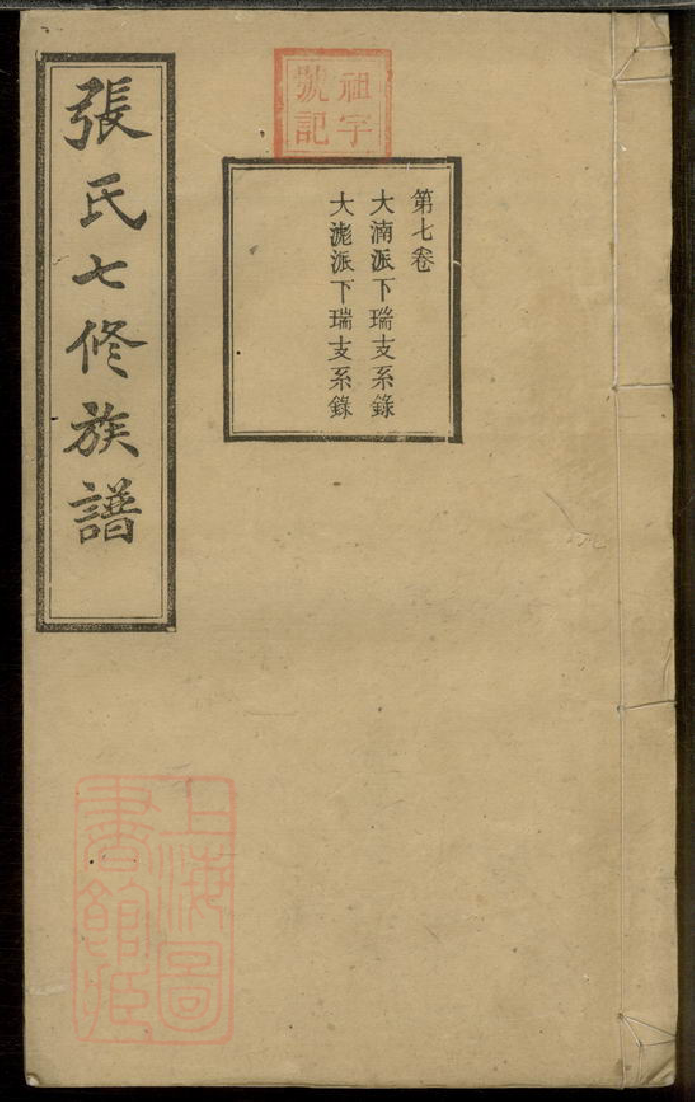 張氏七修族譜
祖字
號記
第七卷
大湳派下瑞支系錄
大滮派下瑞支系錄
上海圖
書館藏